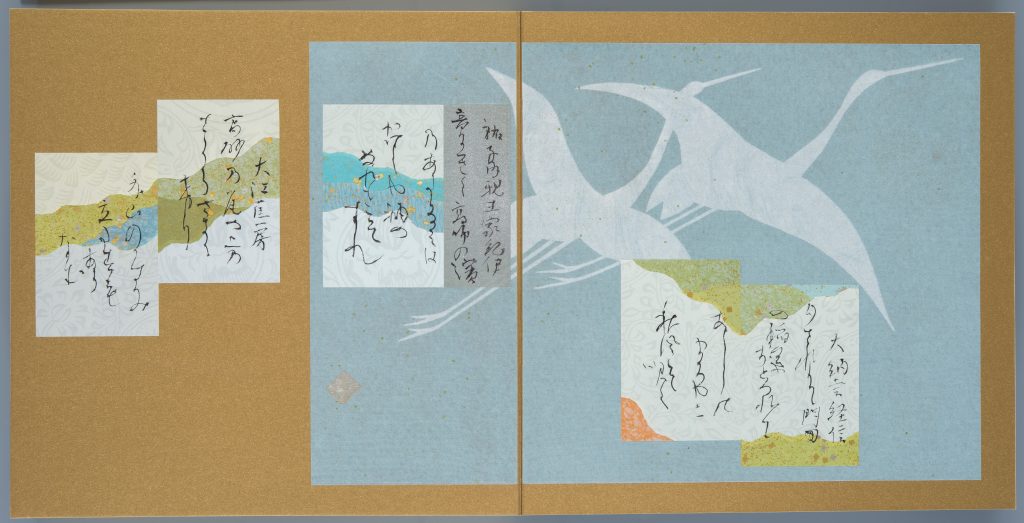 大納言経信
夕されは門田
の稲葉
おとつれて
あしの
まろやに
秋風そ吹く
祐子内親王家紀伊
音にきく高師の濱
乃あたなみは
かけしや袖の
ぬれもこそ
すれ
大江匡房
高砂の尾上の
さくらさき
にけり
外山のかすみ
立たすも
あら
なむ